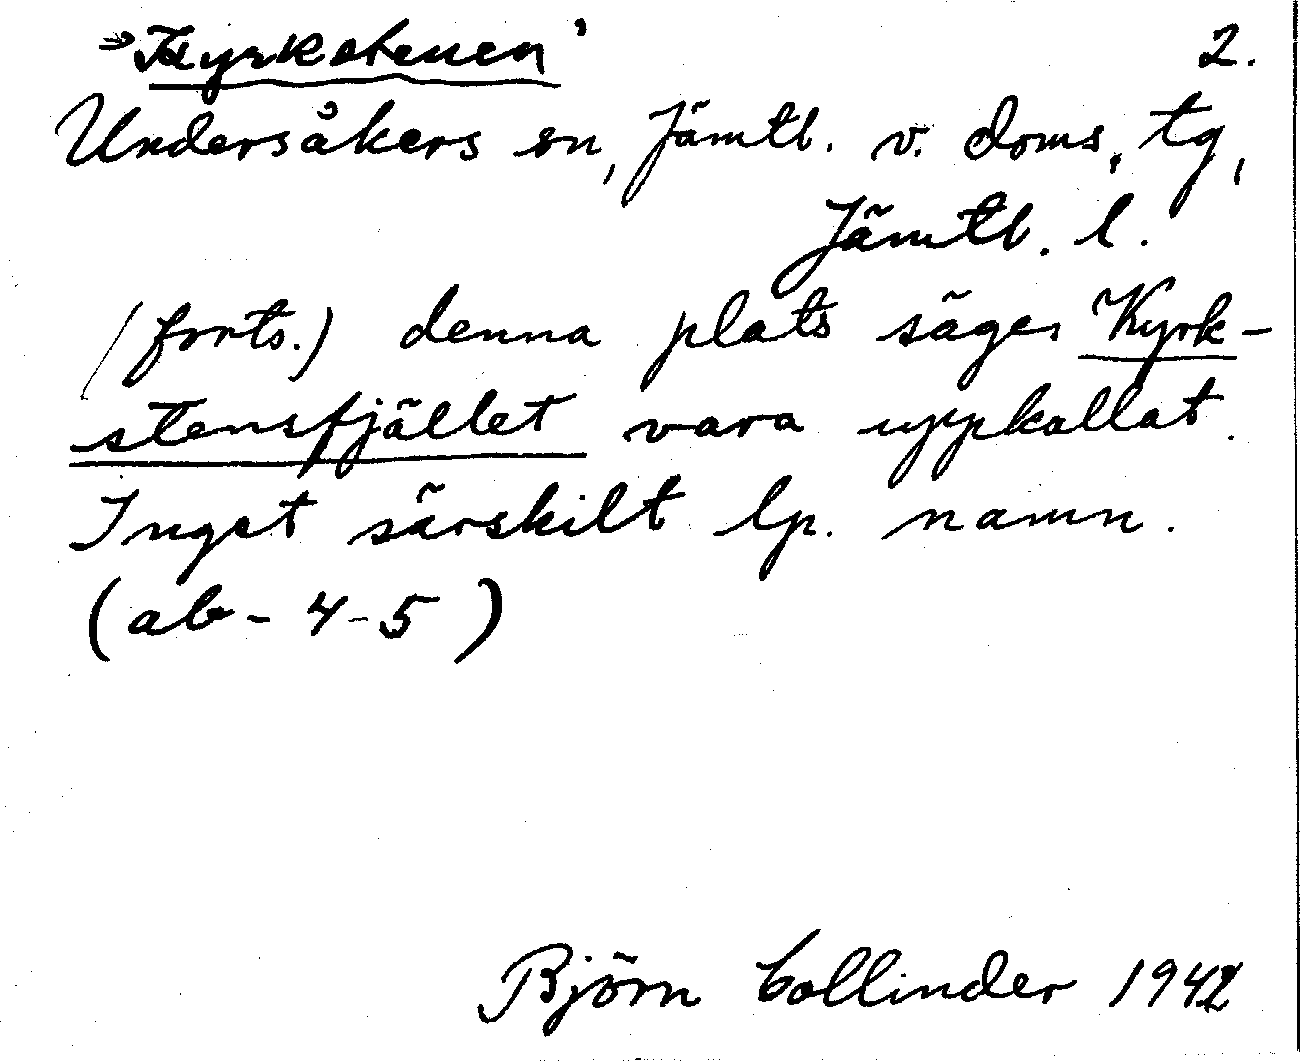 "Kyrkstenen" 2.
Undersåkers sn, Jämtl. v. doms. tg,
Jämtl. l.
(forts.) denna plats säges Kyrk-
stensfjället vara uppkallat.
Inget särskilt lp. namn.
(ab-4-5)
Björn Collinder 1942